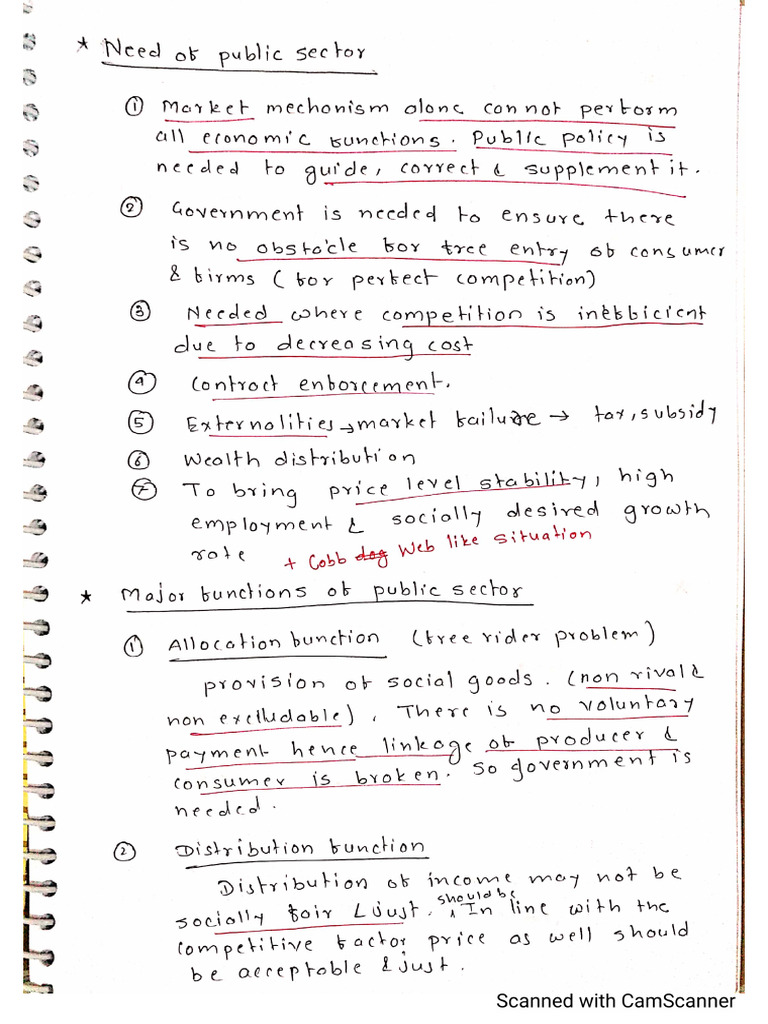 * Need of public sector
① Market mechanism alone can not perform
all economic functions. Public policy is
needed to guide, correct & supplement it.
② Government is needed to ensure there
is no obstacle for free entry of consumer
& firms (for perfect competition)
③ Needed where competition is inefficient
due to decreasing cost
④ Contract enforcement.
⑤ Externalities → market failure → tax, subsidy
⑥ Wealth distribution
⑦ To bring price level stability, high
employment & socially desired growth
rate + Cobb dog Web like situation
* Major functions of public sector
① Allocation function (free rider problem)
provision of social goods. (non rival &
non excludable). There is no voluntary
payment hence linkage of producer &
consumer is broken. So government is
needed.
② Distribution function
Distribution of income may not be
socially fair & just. should be In line with the
competitive factor price as well should
be acceptable & just.
Scanned with CamScanner